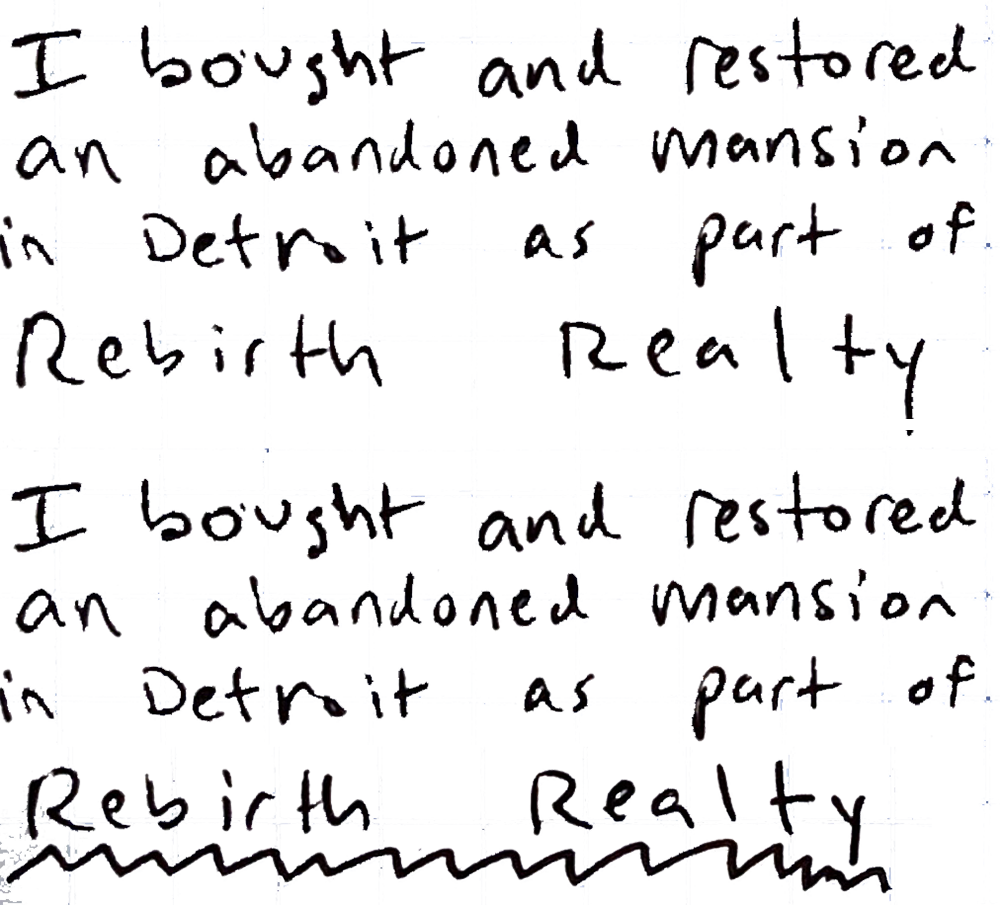 I bought and restored
an abandoned mansion
in Detroit as part of
Rebirth Realty
I bought and restored
an abandoned mansion
in Detroit as part of
Rebirth Realty